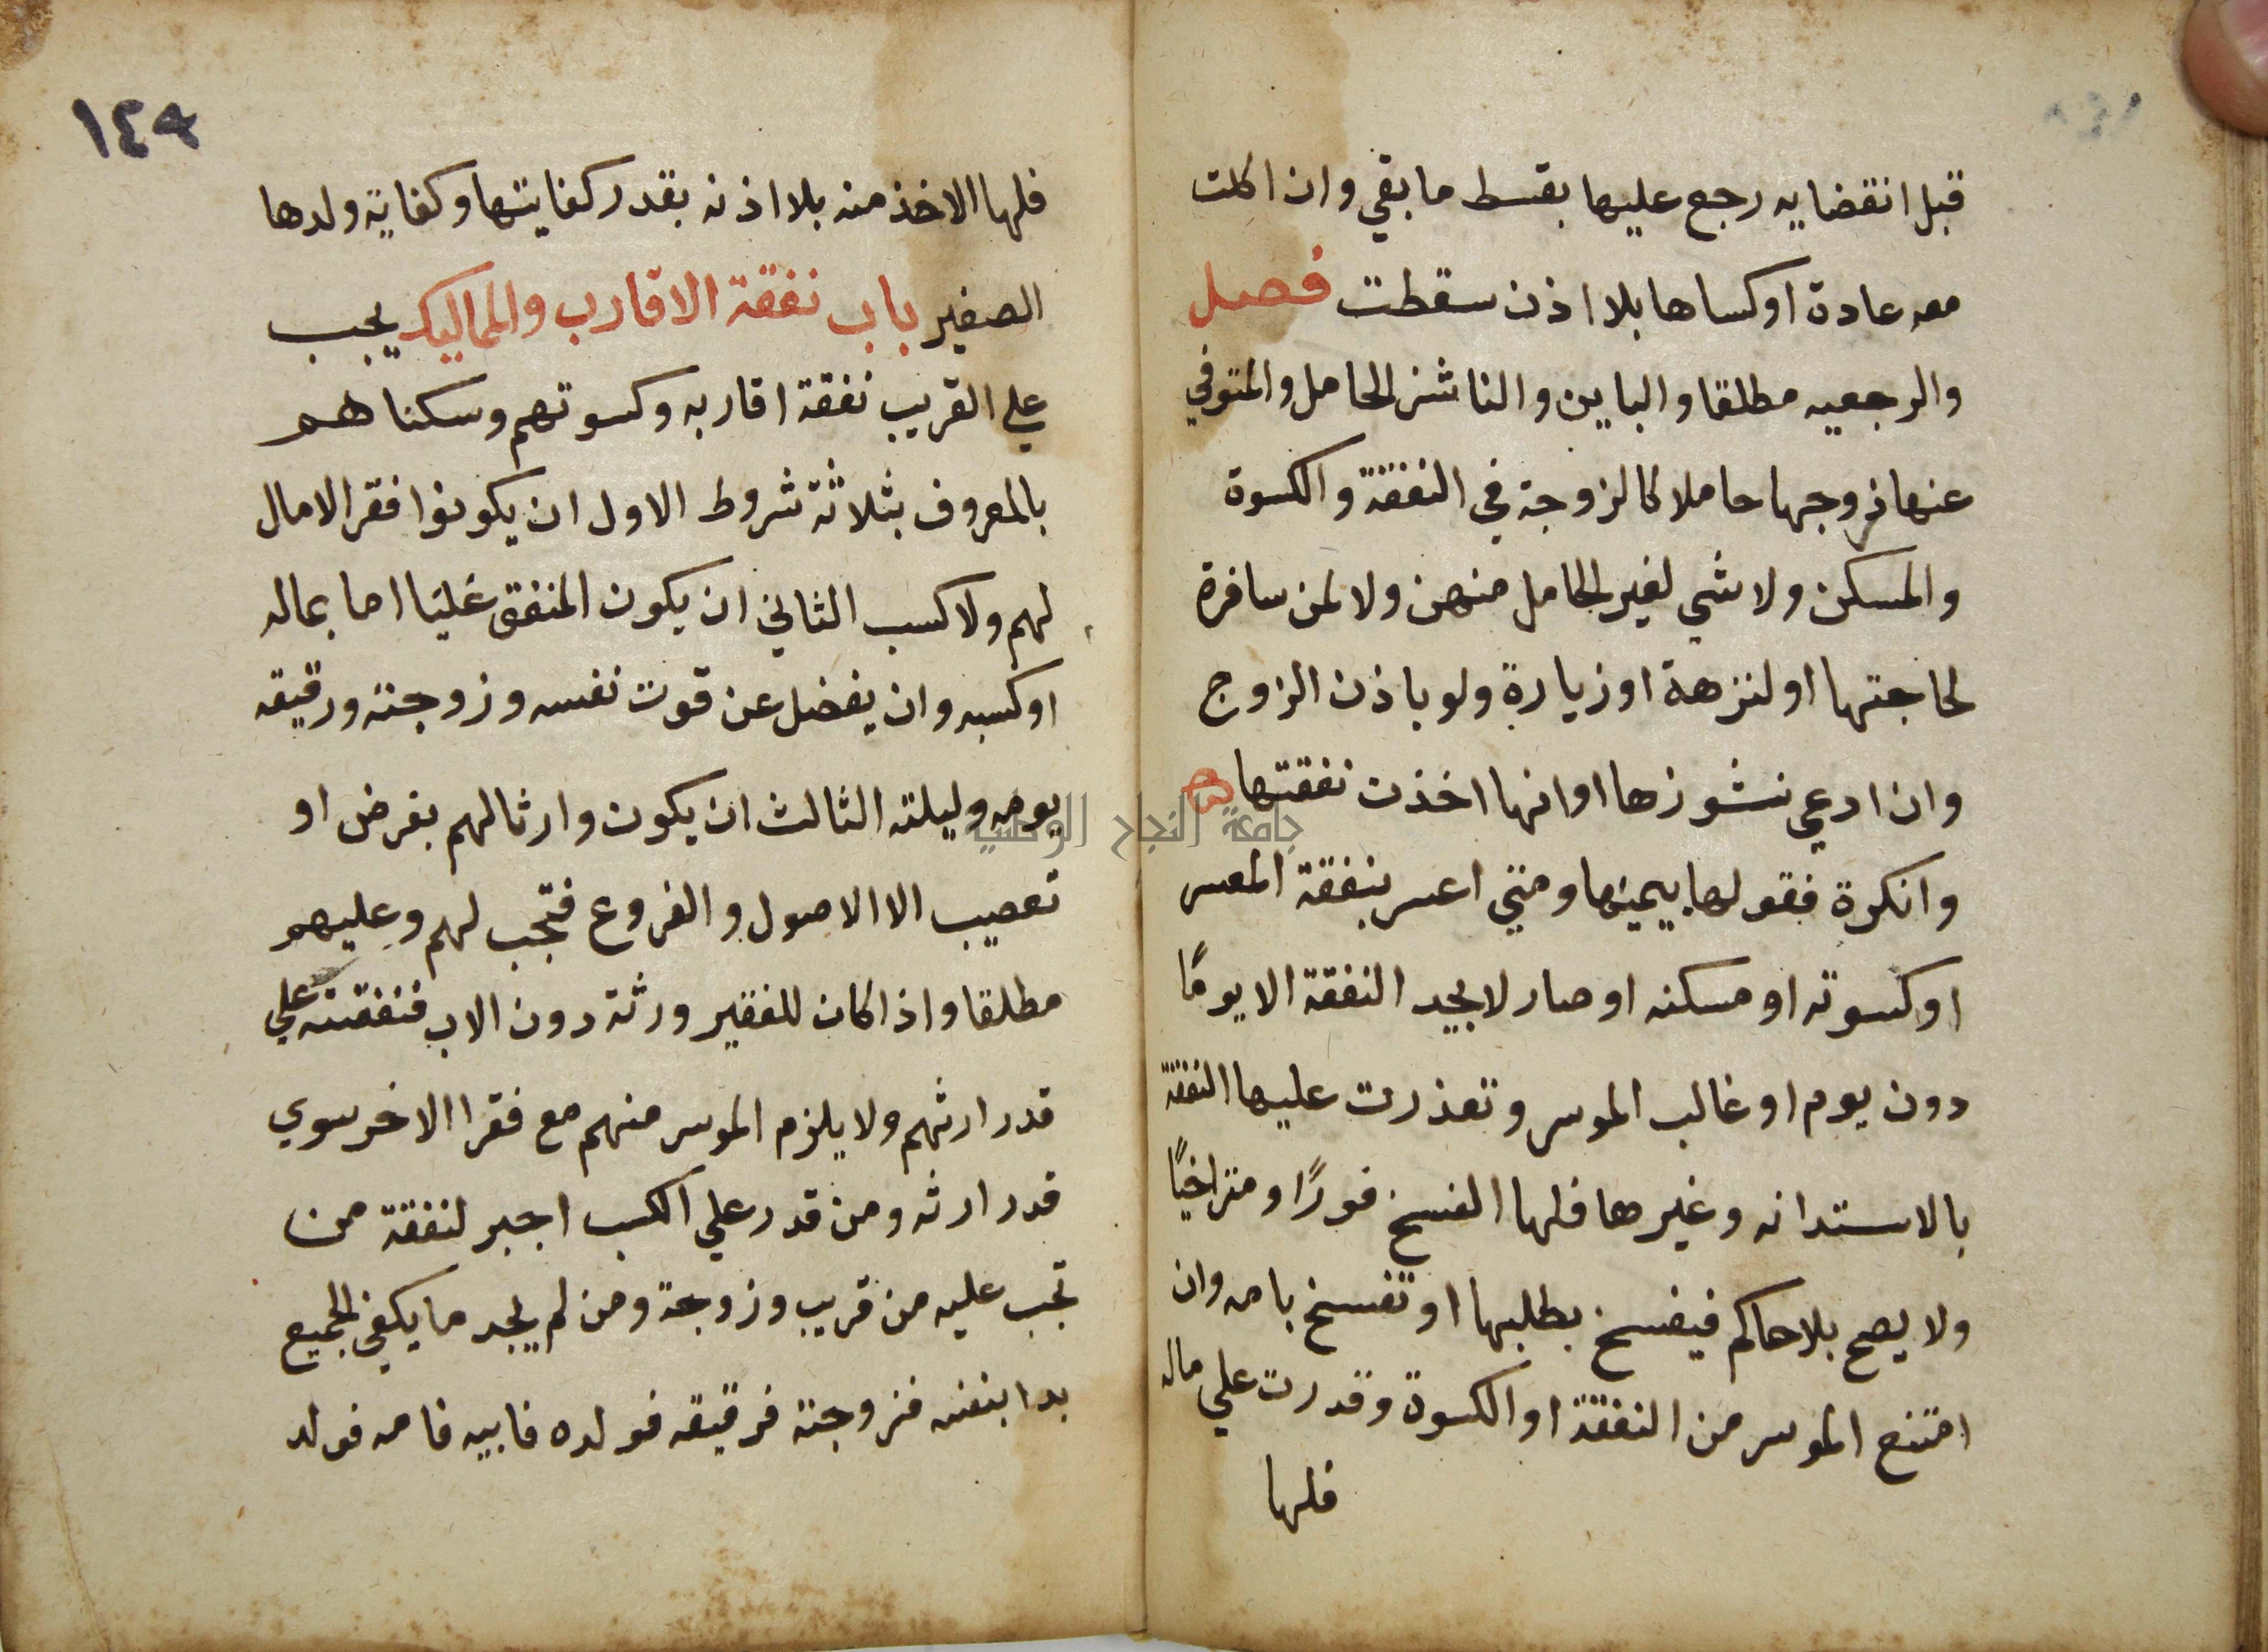 قبل انقضايه رجع عليها بقسط ما بقي وان اكلت
معه عادة او كساها بلا اذن سقطت فصل
والرجعيه مطلقا والباين والناشز الحامل والمتوفي
عنها زوجها حاملا كالزوجة في النفقة والكسوة
والمسكن ولا شي لغير الحامل منهن ولا لمن سافرة
لحاجتها او لنزهة او زيارة ولو باذن الزوج
وان ادعي نشوزها او انها اخذت نفقتها
وانكرة فقولها بيمينها ومتي اعسر بنفقة المعسر
او كسوته او مسكنه او صار لا يجد النفقة الا يومًا
دون يوم او غالب الموسر وتعذرت عليها النفقة
بالاستدانه وغيرها فلها الفسخ فورًا ومتراخيًا
ولا يصح بلا حاكم فيفسخ بطلبها او تفسخ بامه وان
امتنع الموسر من النفقة او الكسوة وقدرت علي ماله
فلها
١٤٩
فلها الاخذ منه بلا اذنه بقدر كفايتها وكفاية ولدها
الصغير باب نفقة الاقارب والمماليك يجب
علي القريب نفقة اقاربه وكسوتهم وسكناهم
بالمعروف بثلاثة شروط الاول ان يكونوا فقرا لا مال
لهم ولا كسب الثاني ان يكون المنفق غنيا اما بماله
او كسبه وان يفضل عن قوت نفسه وزوجته ورقيقه
يومه وليلته الثالث ان يكون وارثا لهم بفرض او
تعصيب الا الاصول والفروع فتجب لهم وعليهم
مطلقا واذا كان للفقير ورثة دون الاب فنفقته علي
قدر ارثهم ولا يلزم الموسر منهم مع فقر الاخر سوي
قدر ارثه ومن قدر علي الكسب اجبر لنفقة من
تجب عليه من قريب وزوجة ومن لم يجد ما يكفي الجميع
بدا بنفسه فزوجته فرقيقه فولده فابيه فامه فولد
جامعة النجاح الوطنية